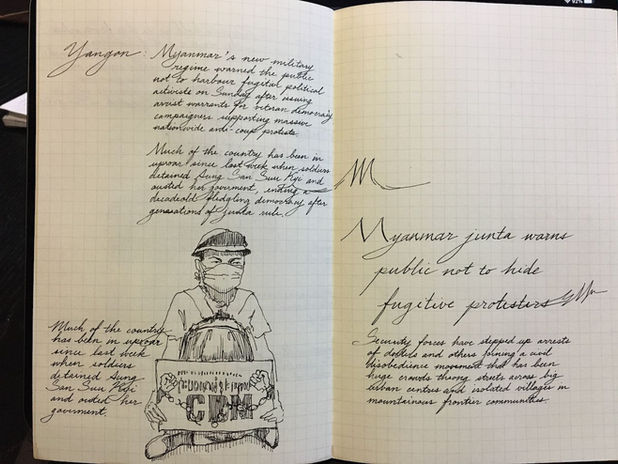 Yangon: Myanmar's new military
regime warned the public
not to harbour fugital political
activists on Sunday after issuing
arrest warrants for vetran democracy
campaigners supporting massive
nationwide anti-coup protests.
Much of the country has been in
uproar since last week when soldiers
detained Aung San Suu Kyi and
ousted her goverment, ending a
decadeold fledgling democracy after
generations of junta rule.
Much of the country
has been in uproar
since last week
when soldiers
detained Aung
San Suu Kyi
and ousted her
goverment.
support
CDM
M
Myanmar junta warns
public not to hide
fugitive protesters
Security forces have stepped up arrests
of and others joining a civil
disobedience movement that has been
huge crowds throng streets across big
urban centres and isolated villages in
mountainous frontier communities.
92%